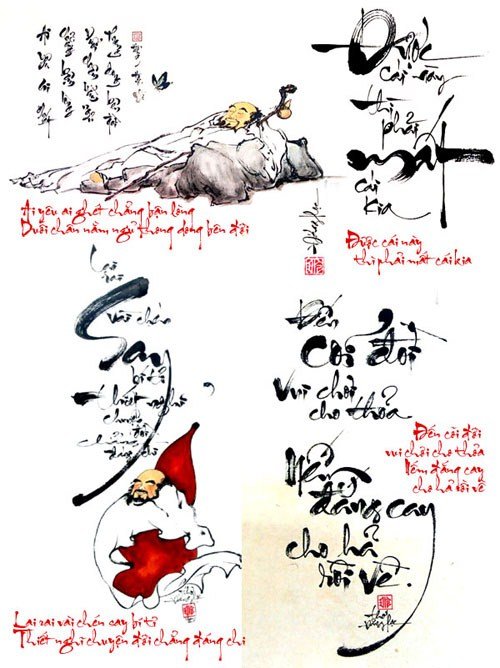 Được
cái này
thì phải
mất
cái
kia
Ai yêu ai ghét chẳng bận lòng
Duỗi chân nằm ngủ thong dong bên đời
Được cái này
thì phải mất cái kia
Lai rai
vài chén
Say
bí tỉ
Thiết nghĩ
chuyện
đời
chẳng
đáng chi
Đến
cõi đời
vui chơi
cho thỏa
Nếm
đắng cay
cho hả
rồi về.
Đến cõi đời
vui chơi cho thỏa
Nếm đắng cay
cho hả rồi về
Lai rai vài chén say bí tỉ
Thiết nghĩ chuyện đời chẳng đáng chi